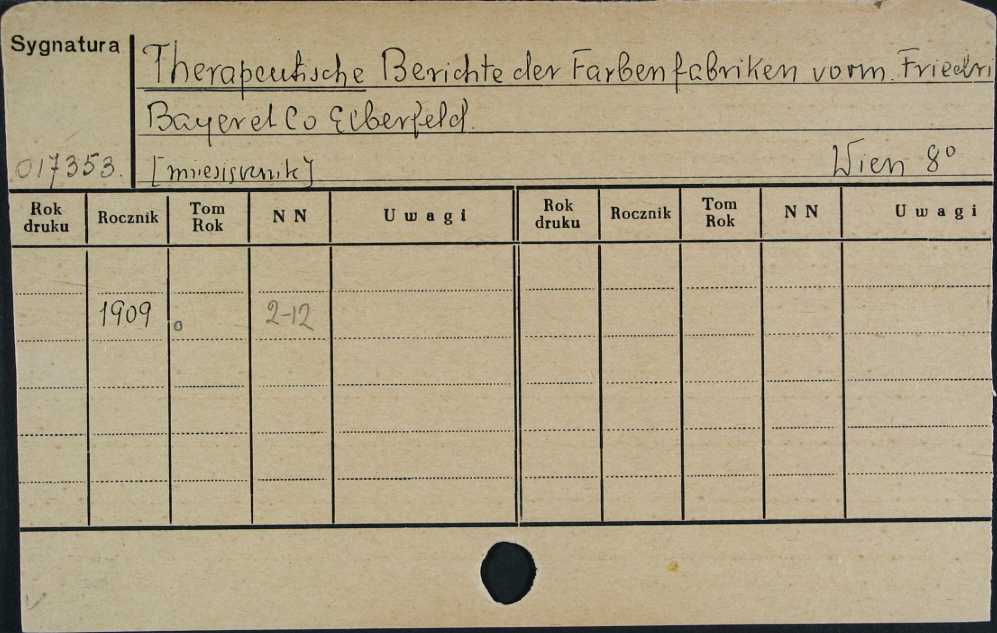 Sygnatura
Therapeutische Berichte der Farbenfabriken vorm. Friedri
Bayer et Co Elberfeld.
017353. [miesięcznik] Wien 8°
Rok druku Rocznik Tom Rok N N Uwagi Rok druku Rocznik Tom Rok N N Uwagi
1909 2-12